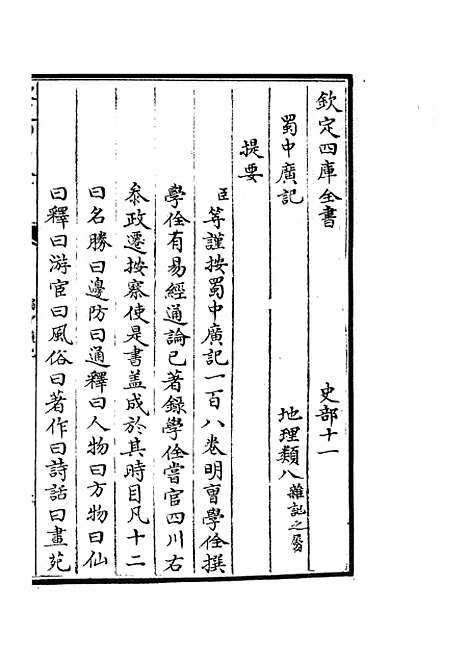 欽定四庫全書　　史部十一
蜀中廣記　　地理類八雜記之屬
提要
臣等謹按蜀中廣記一百八卷明曹學佺撰
學佺有易經通論已著錄學佺嘗官四川右
叅政遷按察使是書盖成於其時目凡十二
曰名勝曰邊防曰通釋曰人物曰方物曰仙
曰釋曰游宦曰風俗曰著作曰詩話曰畫苑